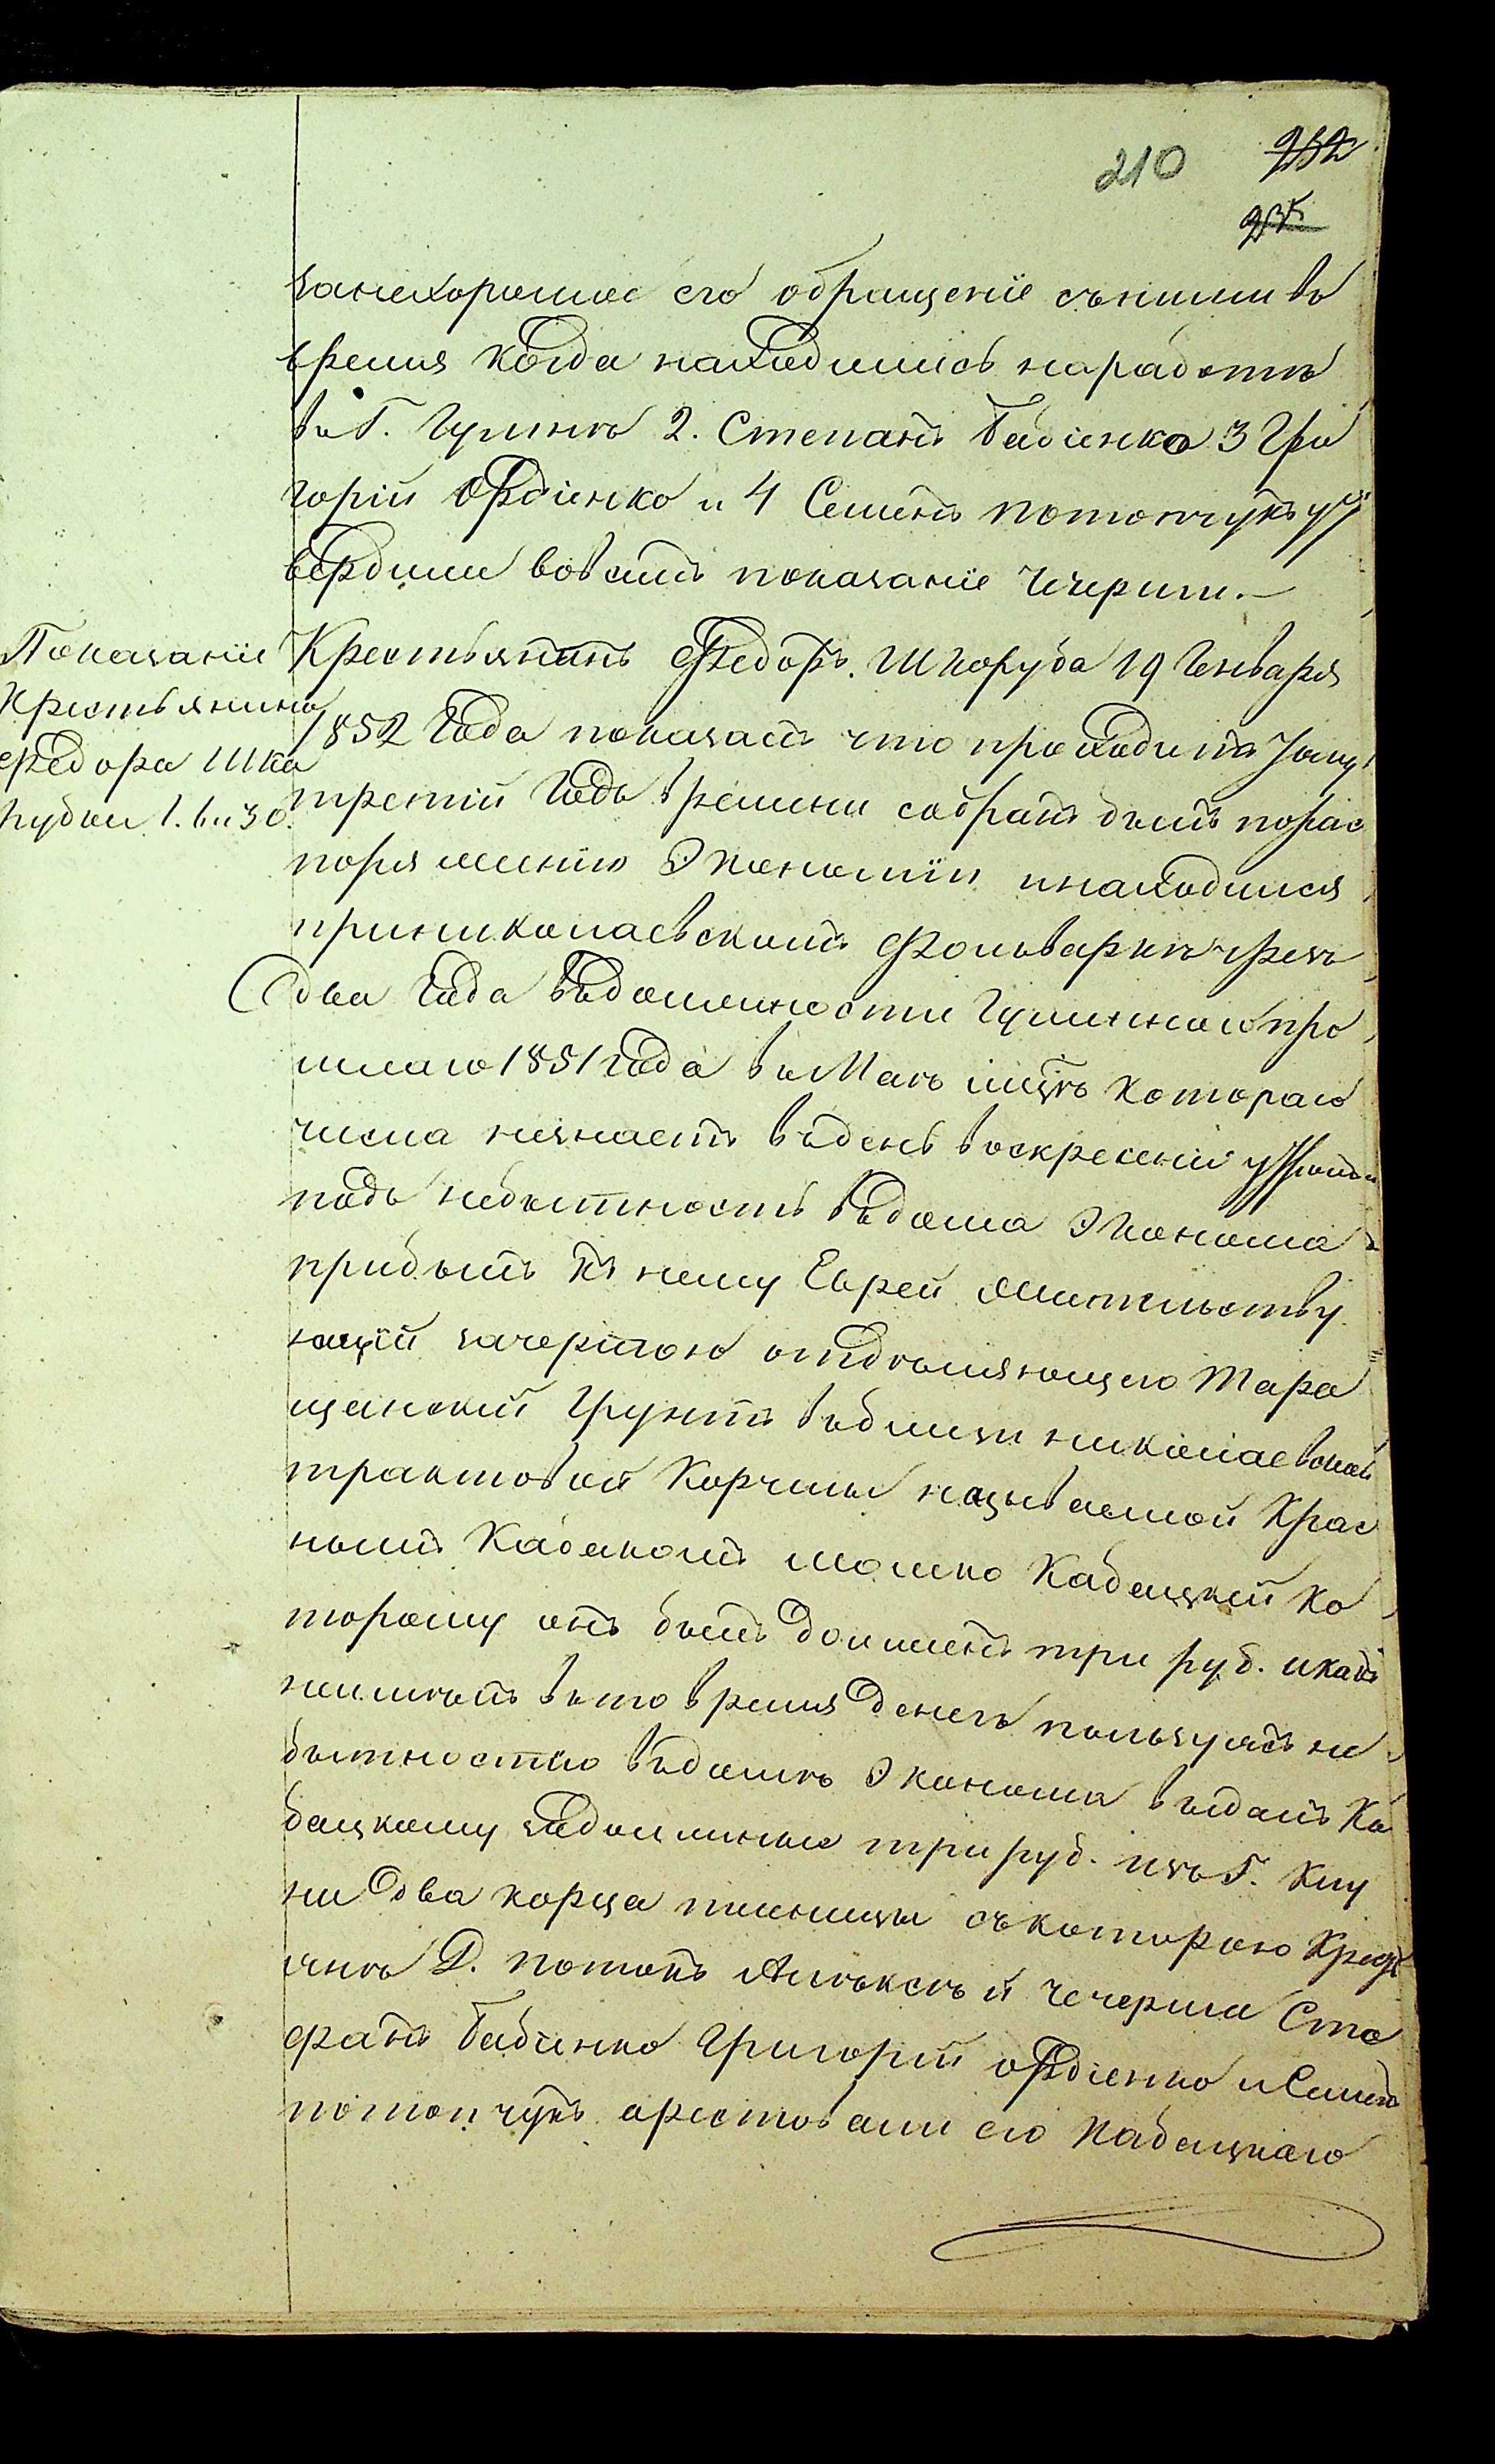 210 232
занехорошее его обращеніе съними во
время когда находились наработѣ
въ Г. Гумнѣ 2. Степанъ Бабіенко 3 Гри
горій Ордіенко и 4 Семенъ потопчукъ ут
вердили вовсемъ показаніе Чечерши.
Показаніе
Крестьянина
Федора Шка
рубы л. 6 и 30.
Крестьянинъ Федоръ Шкоруба 19 Генваря
1852 Года показалъ что проходитъ уже
третій Годъ времени собранъ былъ порас
поряженію Экономіи инаходился
приниколаевскомъ Фольваркѣ чрезъ
два Года въдолжности Гуменнаго про
шлаго 1851 года въ Маѣ мцѣ котораго
числа незнаетъ въдень воскресеній утромъ
подъ небытность въдома Эконома
прибылъ къ нему Еврей жительству
ющій зачертою отдѣляющею Тара
щанскій Грунтъ въблизи николаевской
трактовой Корчмы называемой Крас
нымъ Кабакомъ мошко Кабацкій ко
торому онъ былъ долженъ три руб. икакъ
неимѣлъ вътовремя денегъ пользуясь не
бытностью въдомѣ Эконома выдалъ Ка
бацкому задолжные три руб. изъ Г. Клу
ни два корца пшеницы съкоторою
Д. потокъ Алѣксѣй Чечерша Сте
фанъ Бабіенко Григорій ордіенко и Семенъ
потопчукъ арестовали его Кабацкаго